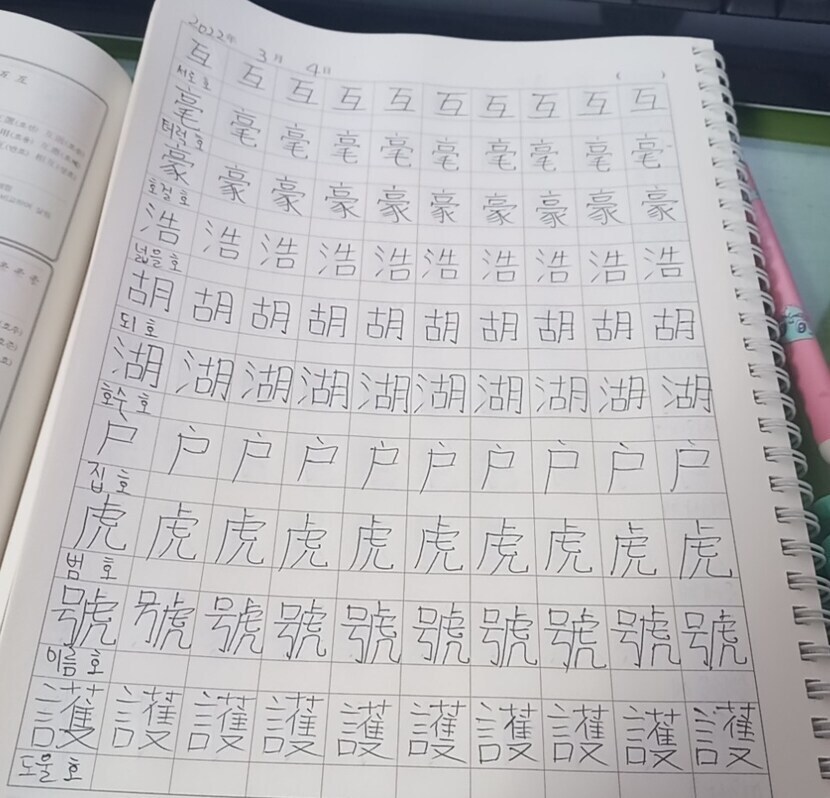 2022年 3月 4日 ( )
互 互 互 互 互 互 互 互 互 互
서로 호
毫 毫 毫 毫 毫 毫 毫 毫 毫 毫
터럭 호
豪 豪 豪 豪 豪 豪 豪 豪 豪 豪
호걸 호
浩 浩 浩 浩 浩 浩 浩 浩 浩 浩
넓을 호
胡 胡 胡 胡 胡 胡 胡 胡 胡 胡
되 호
湖 湖 湖 湖 湖 湖 湖 湖 湖 湖
호수 호
戶 户 户 户 户 户 户 户 户 户
집 호
虎 虎 虎 虎 虎 虎 虎 虎 虎 虎
범 호
號 號 號 號 號 號 號 號 號 號
이름 호
護 護 護 護 護 護 護 護 護 護
도울 호